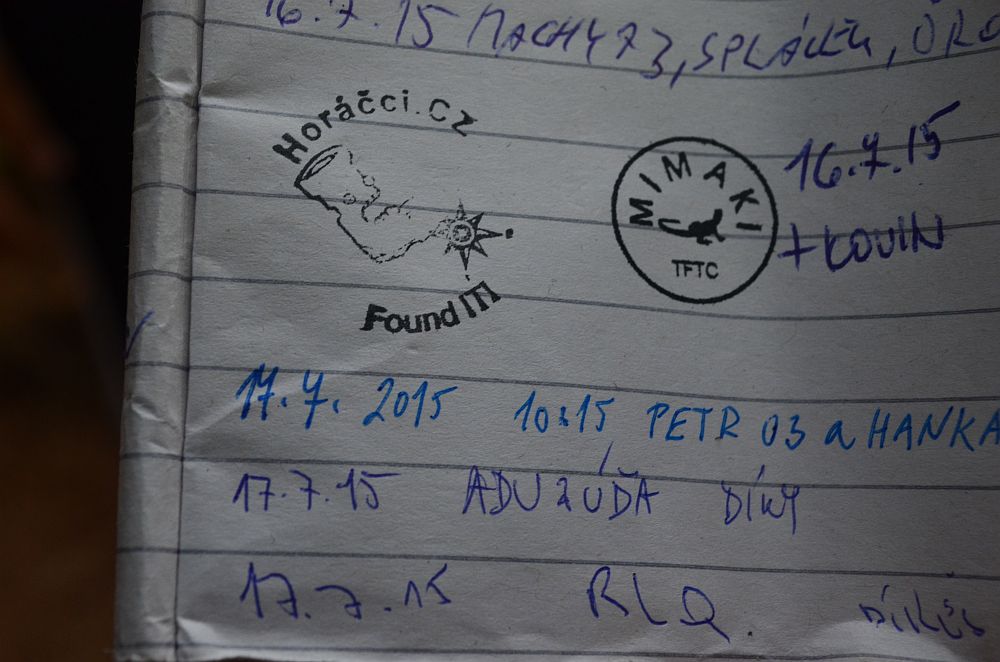 16.7.15 MACHY73,
Horáčci.Cz
Found It!
MIMAKI
TFTC
16.7.15
+KOUIN
17.7.2015 10:15 PETR 03 a HANKA
17.7.15 DÍKY
17.7.15 RLQ.